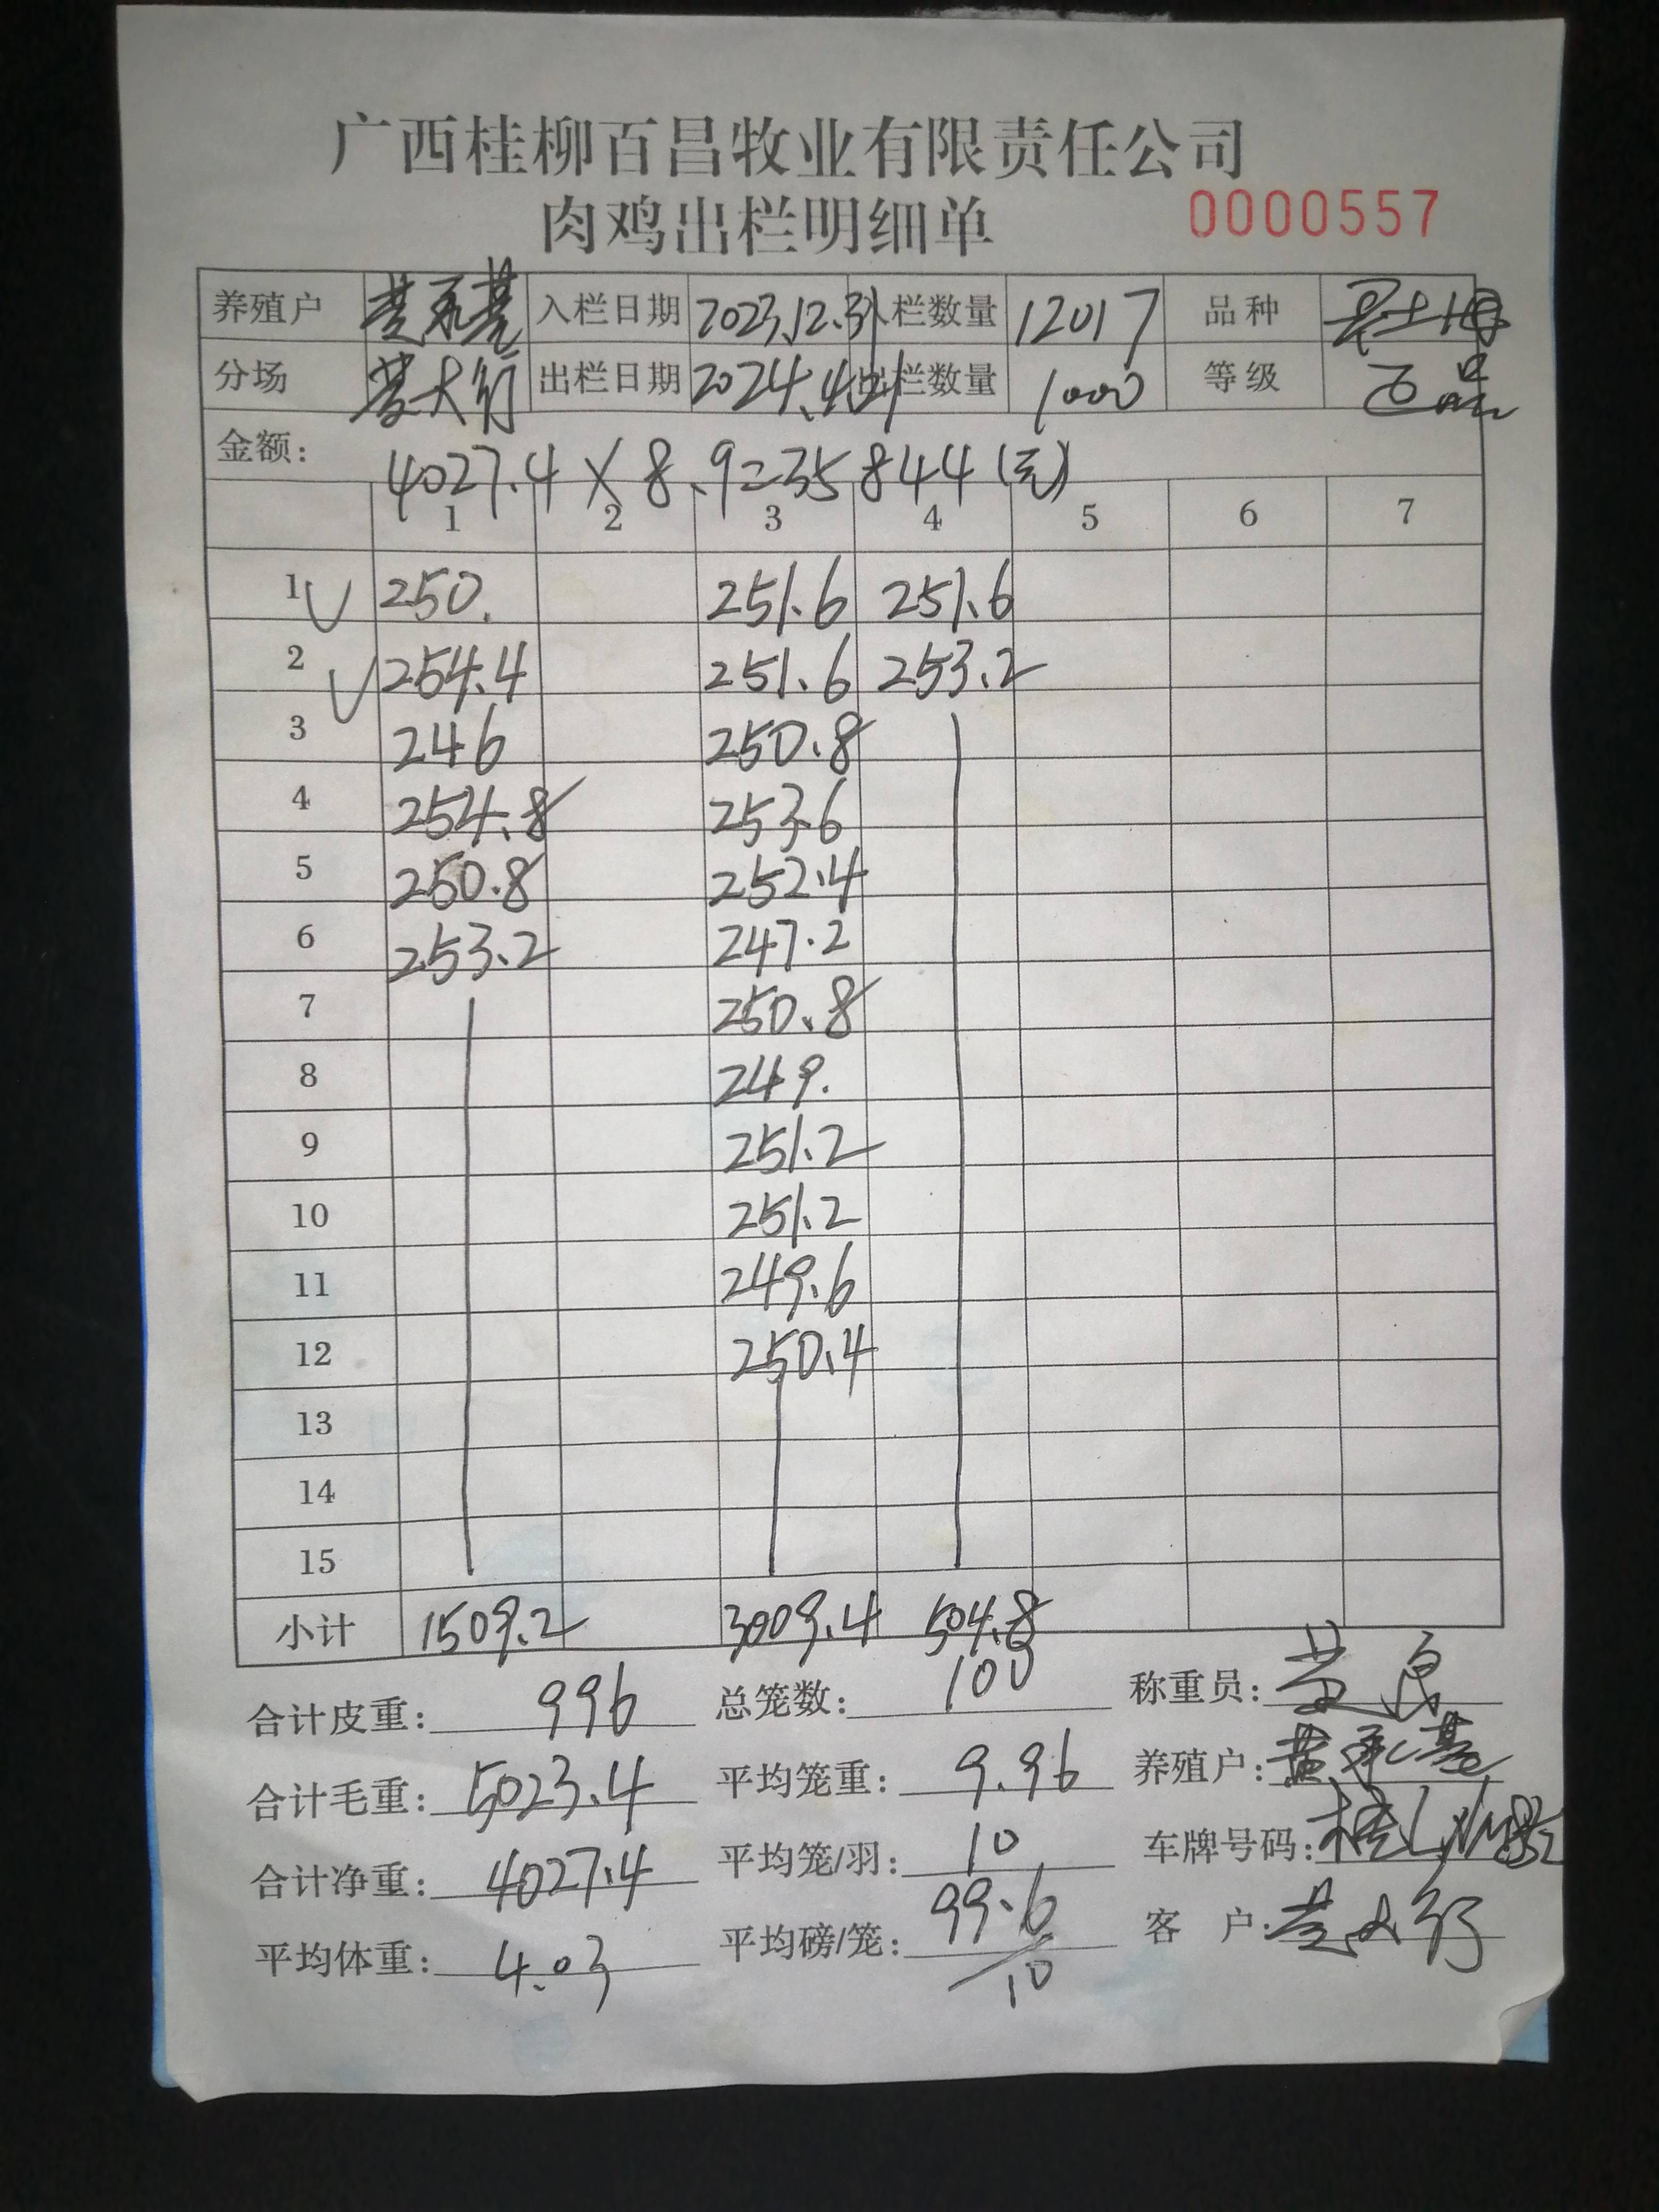 广西桂柳百昌牧业有限责任公司
肉鸡出栏明细单 0000557
养殖户 黄承基 入栏日期 2023.12.31 入栏数量 12017 品种
分场 黄大行 出栏日期 2024.4.21 出栏数量 1000 等级 正品
金额: 4027.4 X 8.9=35844(元)
1 2 3 4 5 6 7
1 250. 251.6 251.6
2 254.4 251.6 253.2
3 246 250.8
4 254.8 253.6
5 250.8 252.4
6 253.2 247.2
7 250.8
8 249.
9 251.2
10 251.2
11 249.6
12 250.4
13
14
15
小计 1509.2 3009.4 504.8
合计皮重: 996 总笼数: 100 称重员: 黄
合计毛重: 5023.4 平均笼重: 9.96 养殖户: 黄承基
合计净重: 4027.4 平均笼/羽: 10 车牌号码:
平均体重: 4.03 平均磅/笼: 99.6/10 客 户: 黄大行